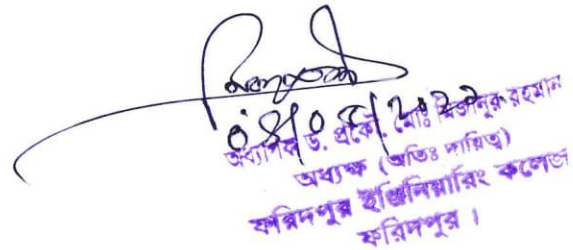 ০৪/০৫/২০২২
অধ্যাপক ড. প্রকৌ. মোঃ মিজানুর রহমান
অধ্যক্ষ (অতিঃ দায়িত্ব)
ফরিদপুর ইঞ্জিনিয়ারিং কলেজ
ফরিদপুর ।